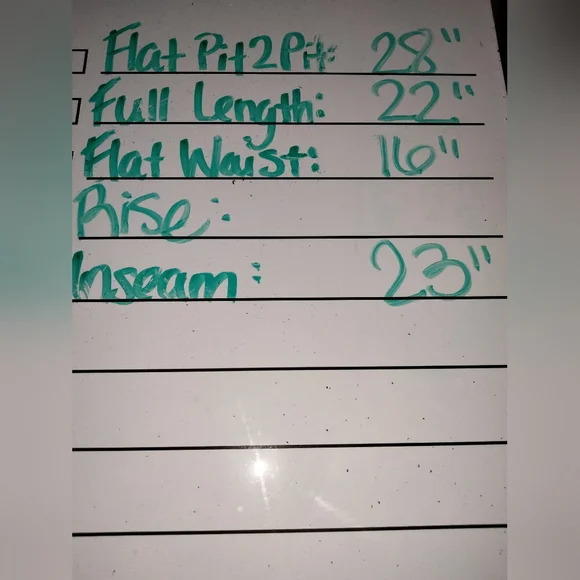 Flat Pit2Pit: 28"
Full Length: 22"
Flat Waist: 16"
Rise:
Inseam: 23"